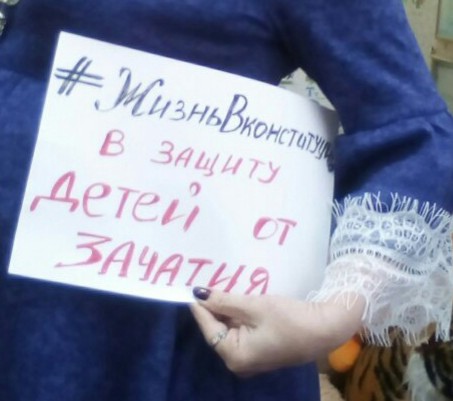 #ЖизньВконституци
В ЗАЩИТУ
ДЕТЕЙ ОТ
ЗАЧАТИЯ